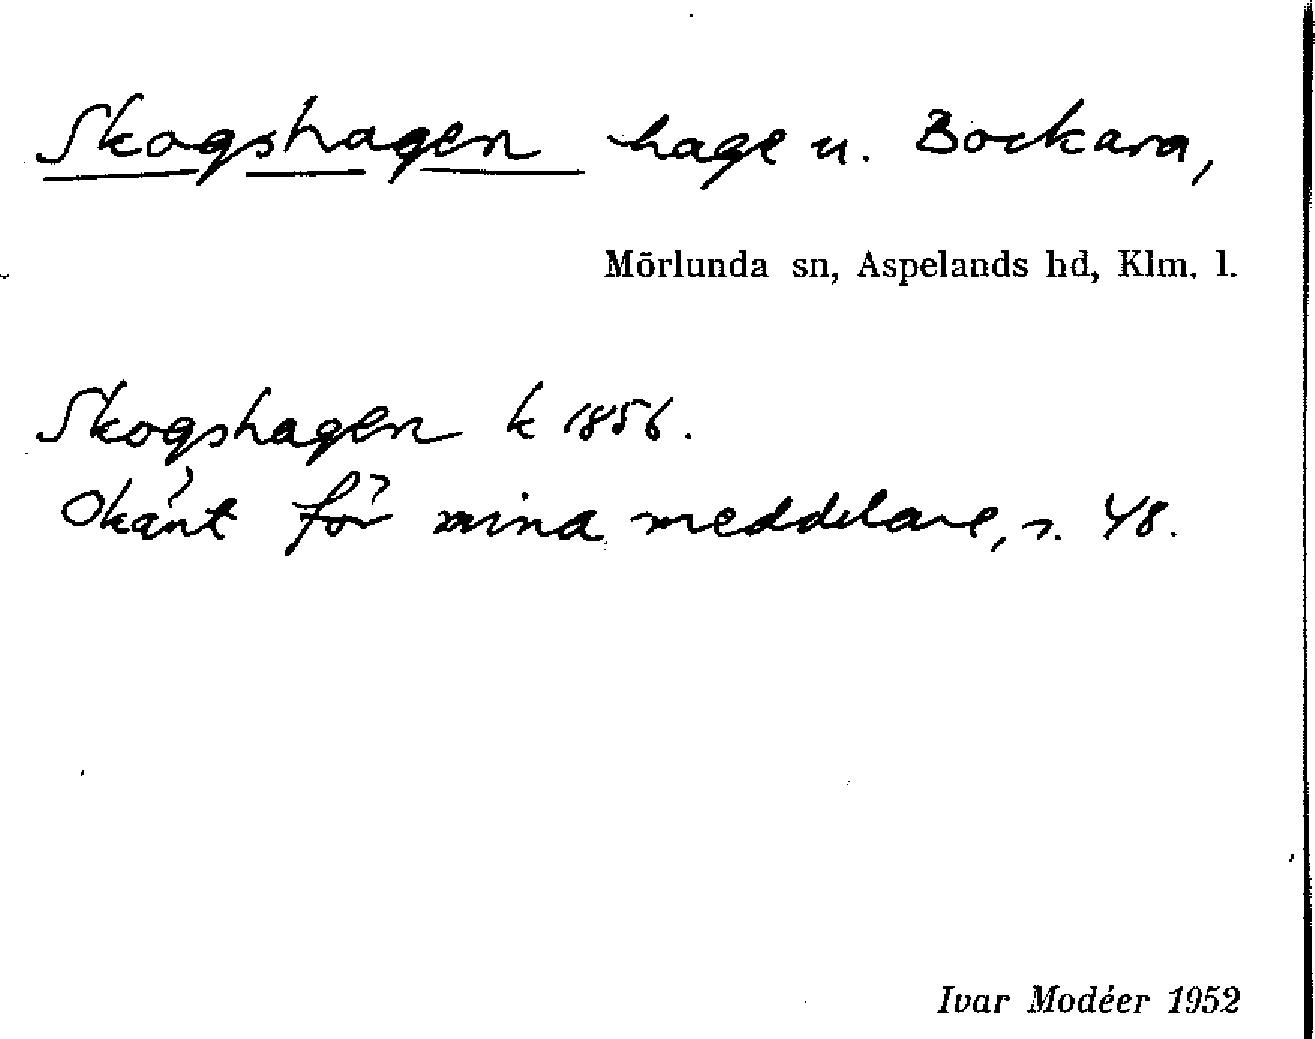 Skogshagen hage u. Bockara,
Mörlunda sn, Aspelands hd, Klm. l.
Skogshagen k 1856.
Okänt för mina meddelare, s. 48.
Ivar Modéer 1952